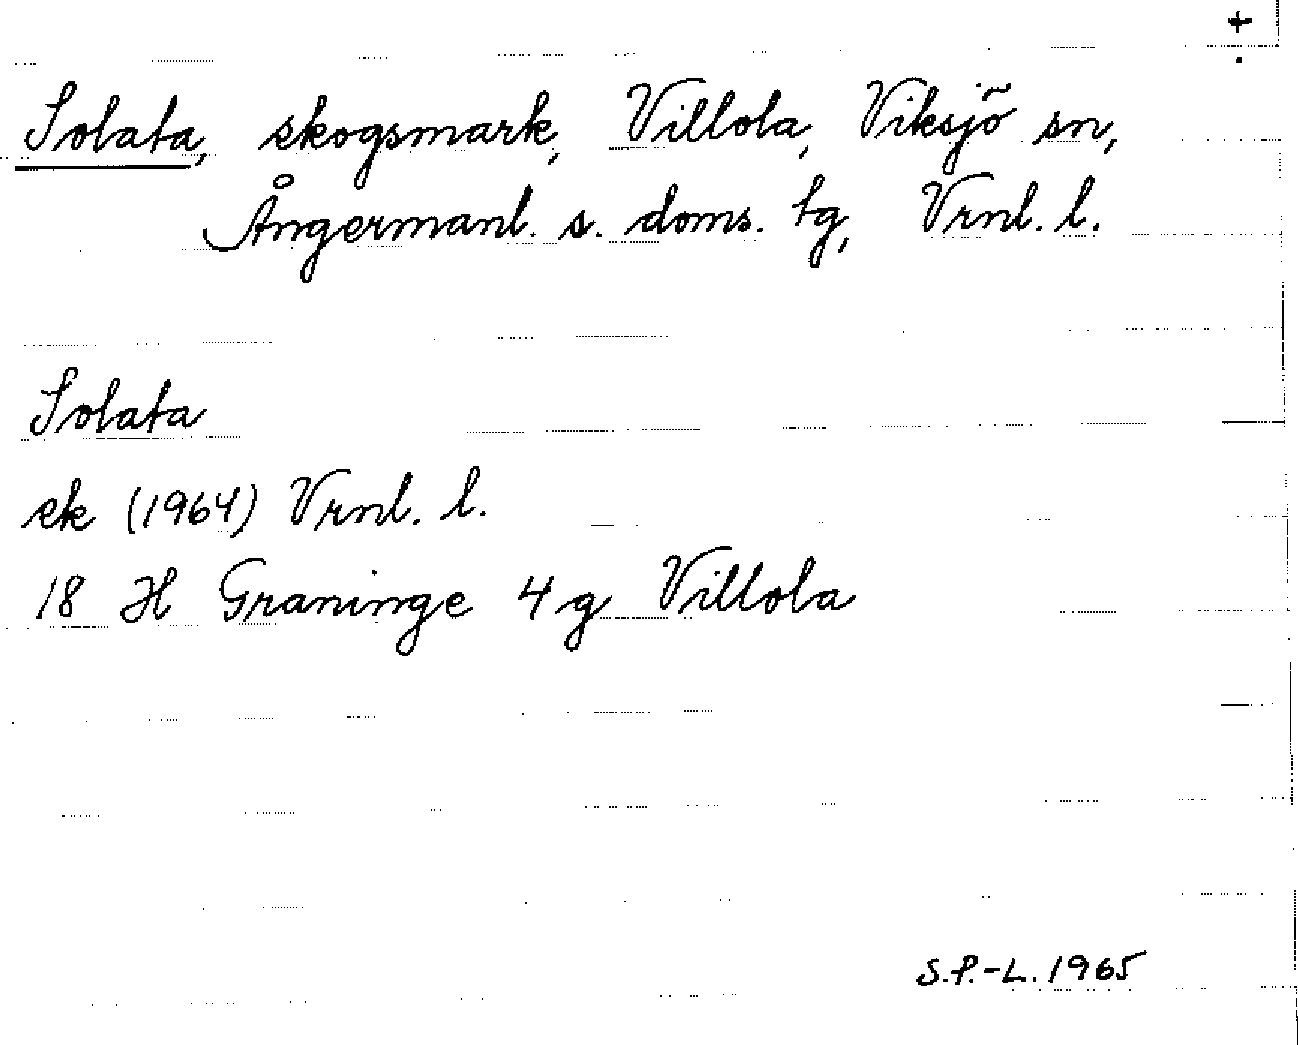 +
Solata, skogsmark, Villola, Viksjö sn,
Ångermanl. s. doms. tg, Vrnl. l.
Solata
ek (1964) Vrnl. l.
18 H Graninge 4 g Villola
S.P.-L. 1965